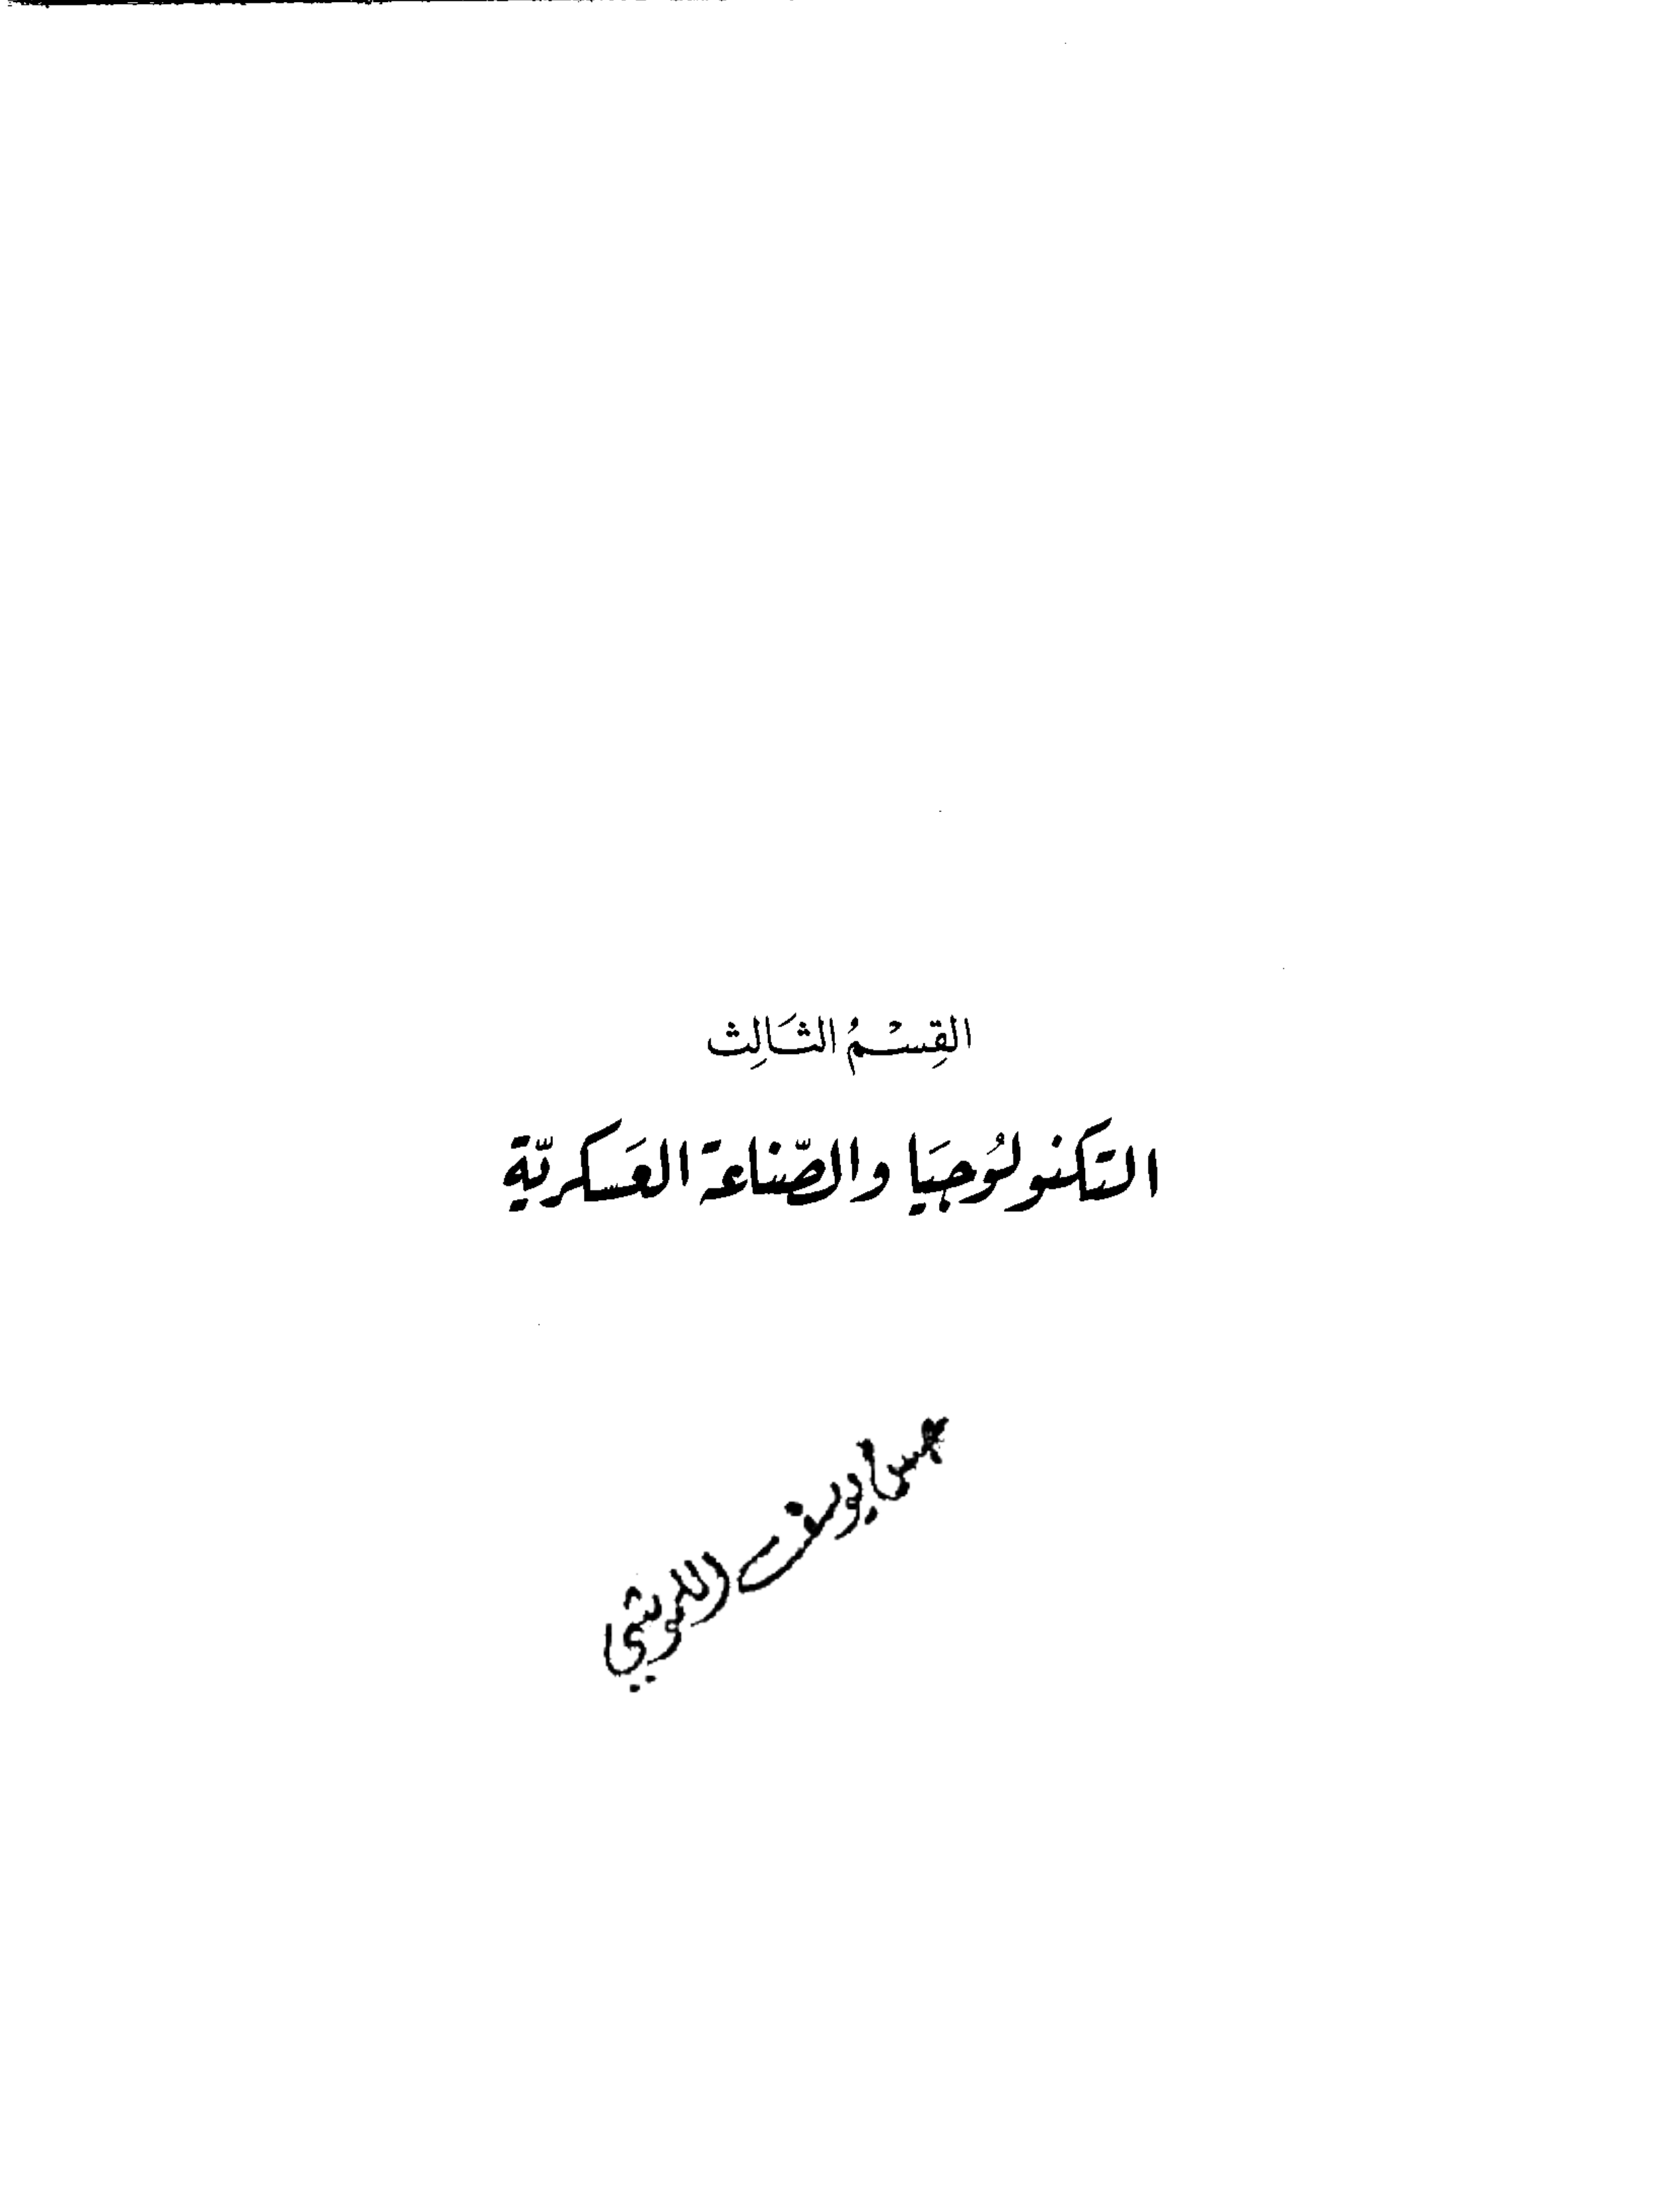 القِسْمُ الثَالِث
التَكنولوُجيَا والصّناعة العَسكريّة
يوسف